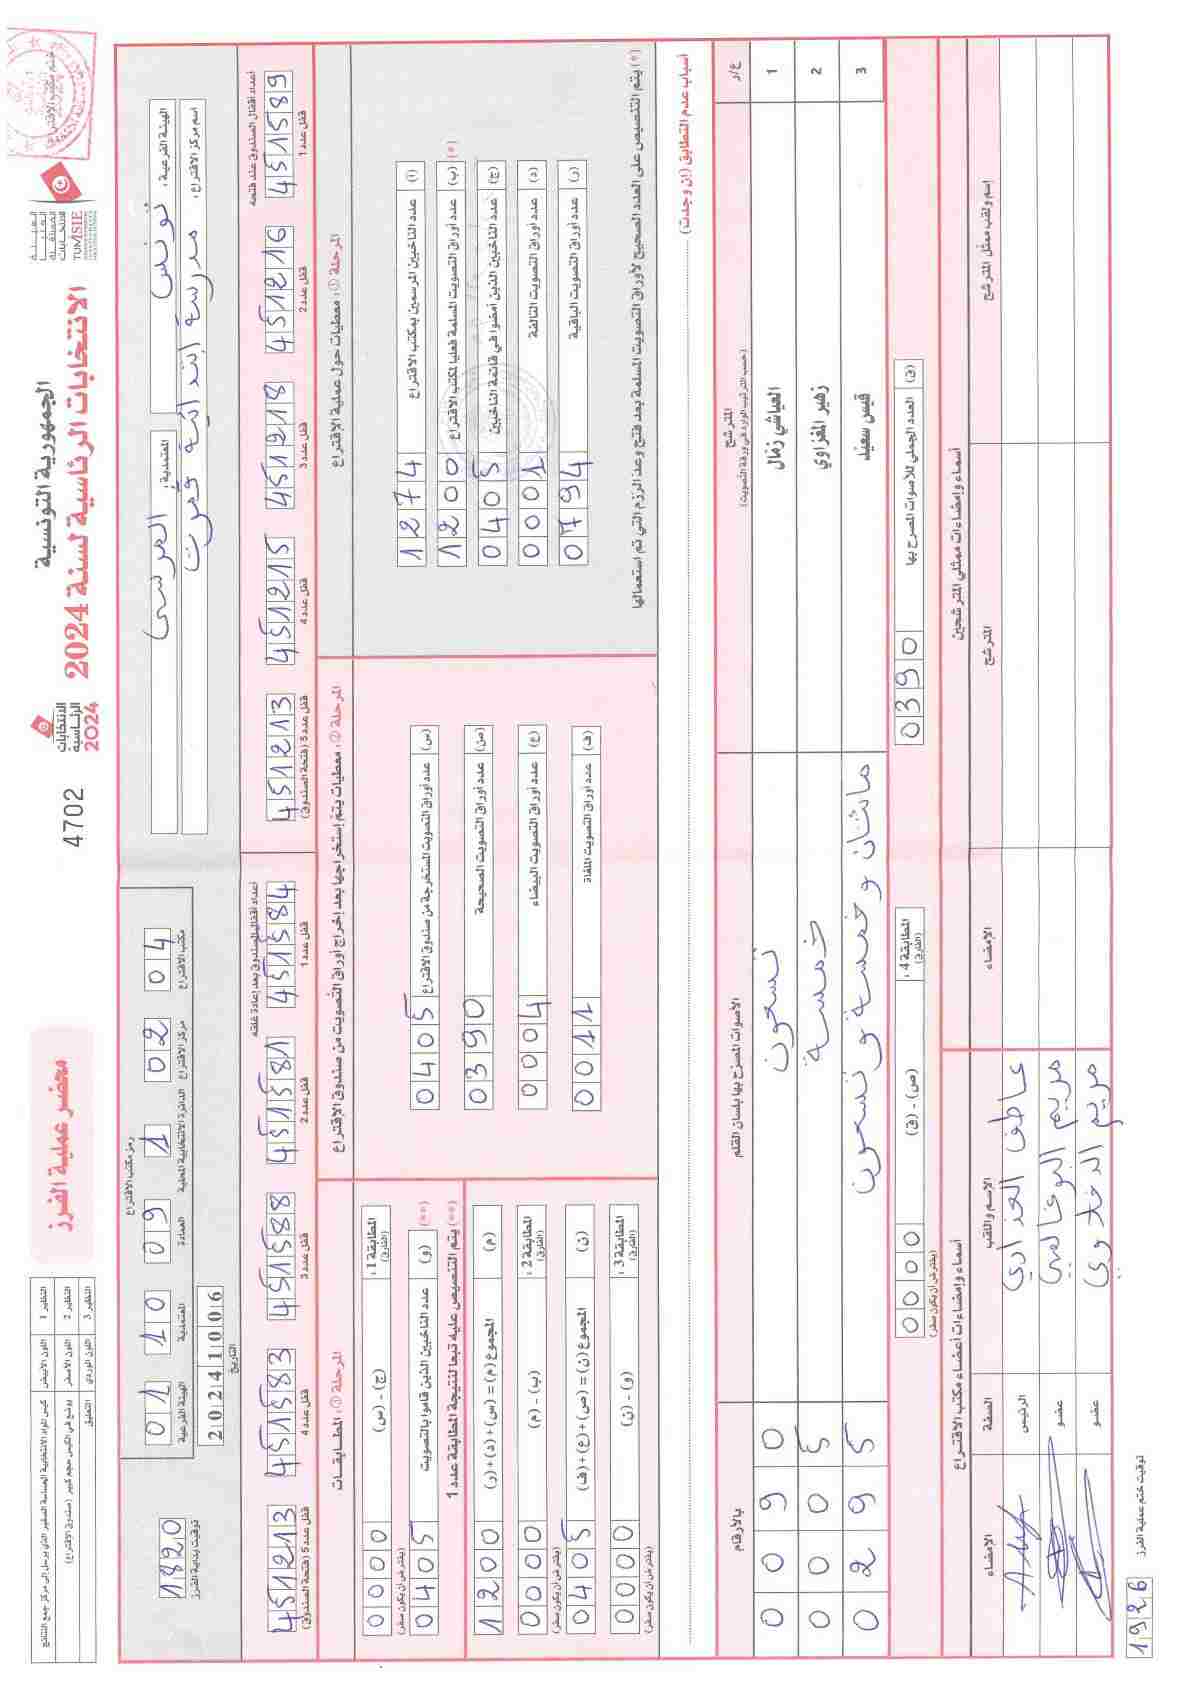 الجمهورية التونسية
الانتخابات الرئاسية لسنة 2024
الهيئة العليا المستقلة للانتخابات
TUNISIE
الانتخابات الرئاسية 2024
4702
محضر عملية الفرز
النظير 1 اللون الأبيض كيس المواد الانتخابية الحساسة الصغير الذي يرسل إلى مركز جمع النتائج
النظير 2 اللون الأصفر يوضع في الكيس حجم كبير (صندوق الاقتراع)
النظير 3 اللون الوردي التعليق
الهيئة الفرعية: تونس
المعتمدية: المرسى
اسم مركز الاقتراع: مدرسة ابتدائية قمرت
رمز مكتب الاقتراع
مكتب الاقتراع 04
مركز الاقتراع 02
الدائرة الانتخابية المحلية 1
العمادة 09
المعتمدية 10
الهيئة الفرعية 01
التاريخ 20241006
توقيت بداية الفرز 1820
أعداد أقفال الصندوق عند فتحه
قفل عدد 1 451589
قفل عدد 2 451216
قفل عدد 3 451218
قفل عدد 4 451215
قفل عدد 5 (فتحة الصندوق) 451213
أعداد أقفال الصندوق بعد إعادة غلقه
قفل عدد 1 451584
قفل عدد 2 451581
قفل عدد 3 451588
قفل عدد 4 451583
قفل عدد 5 (فتحة الصندوق) 451213
المرحلة 1: معطيات حول عملية الاقتراع
(أ) عدد الناخبين المرسمين بمكتب الاقتراع 1274
(ب) عدد أوراق التصويت المسلمة فعليا لمكتب الاقتراع 1200 (*)
(ج) عدد الناخبين الذين أمضوا في قائمة الناخبين 0405
(د) عدد أوراق التصويت التالفة 0001
(ر) عدد أوراق التصويت الباقية 0794
(*) يتم التنصيص على العدد الصحيح لأوراق التصويت المسلمة بعد فتح وعد الرزم التي تم استعمالها
المرحلة 2: معطيات يتم إستخراجها بعد إخراج أوراق التصويت من صندوق الاقتراع
(س) عدد أوراق التصويت المستخرجة من صندوق الاقتراع 0405
(ص) عدد أوراق التصويت الصحيحة 0390
(ع) عدد أوراق التصويت البيضاء 0004
(ف) عدد أوراق التصويت الملغاة 0011
المرحلة 3: المطابقات
المطابقة 1: (الفارق) (ج) - (س) 0000 (يفترض أن يكون صفر)
(**) (و) عدد الناخبين الذين قاموا بالتصويت 0405
(**) يتم التنصيص عليه تبعا لنتيجة المطابقة عدد 1
(م) المجموع (م) = (س) + (د) + (ر) 1200
المطابقة 2: (الفارق) (ب) - (م) 0000 (يفترض أن يكون صفر)
(ن) المجموع (ن) = (ص) + (ع) + (ف) 0405
المطابقة 3: (الفارق) (و) - (ن) 0000 (يفترض أن يكون صفر)
أسباب عدم التطابق (إن وجدت)
ع/ر المترشح (حسب الترتيب الوارد في ورقة التصويت) الأصوات المصرح بها بلسان القلم بالأرقام
1 العياشي زمال تسعون 0090
2 زهير المغزاوي خمسة 0005
3 قيس سعيد مائتان وخمسة وتسعون 0295
(ق) العدد الجملي للأصوات المصرح بها 0390
المطابقة 4: (الفارق) (ص) - (ق) 0000 (يفترض أن يكون صفر)
أسماء وإمضاءات ممثلي المترشحين
اسم ولقب ممثل المترشح المترشح الإمضاء
أسماء وإمضاءات أعضاء مكتب الاقتراع
الإسم واللقب الصفة الإمضاء
الرئيس
مريم عضو
مريم عضو
توقيت ختم عملية الفرز 1926